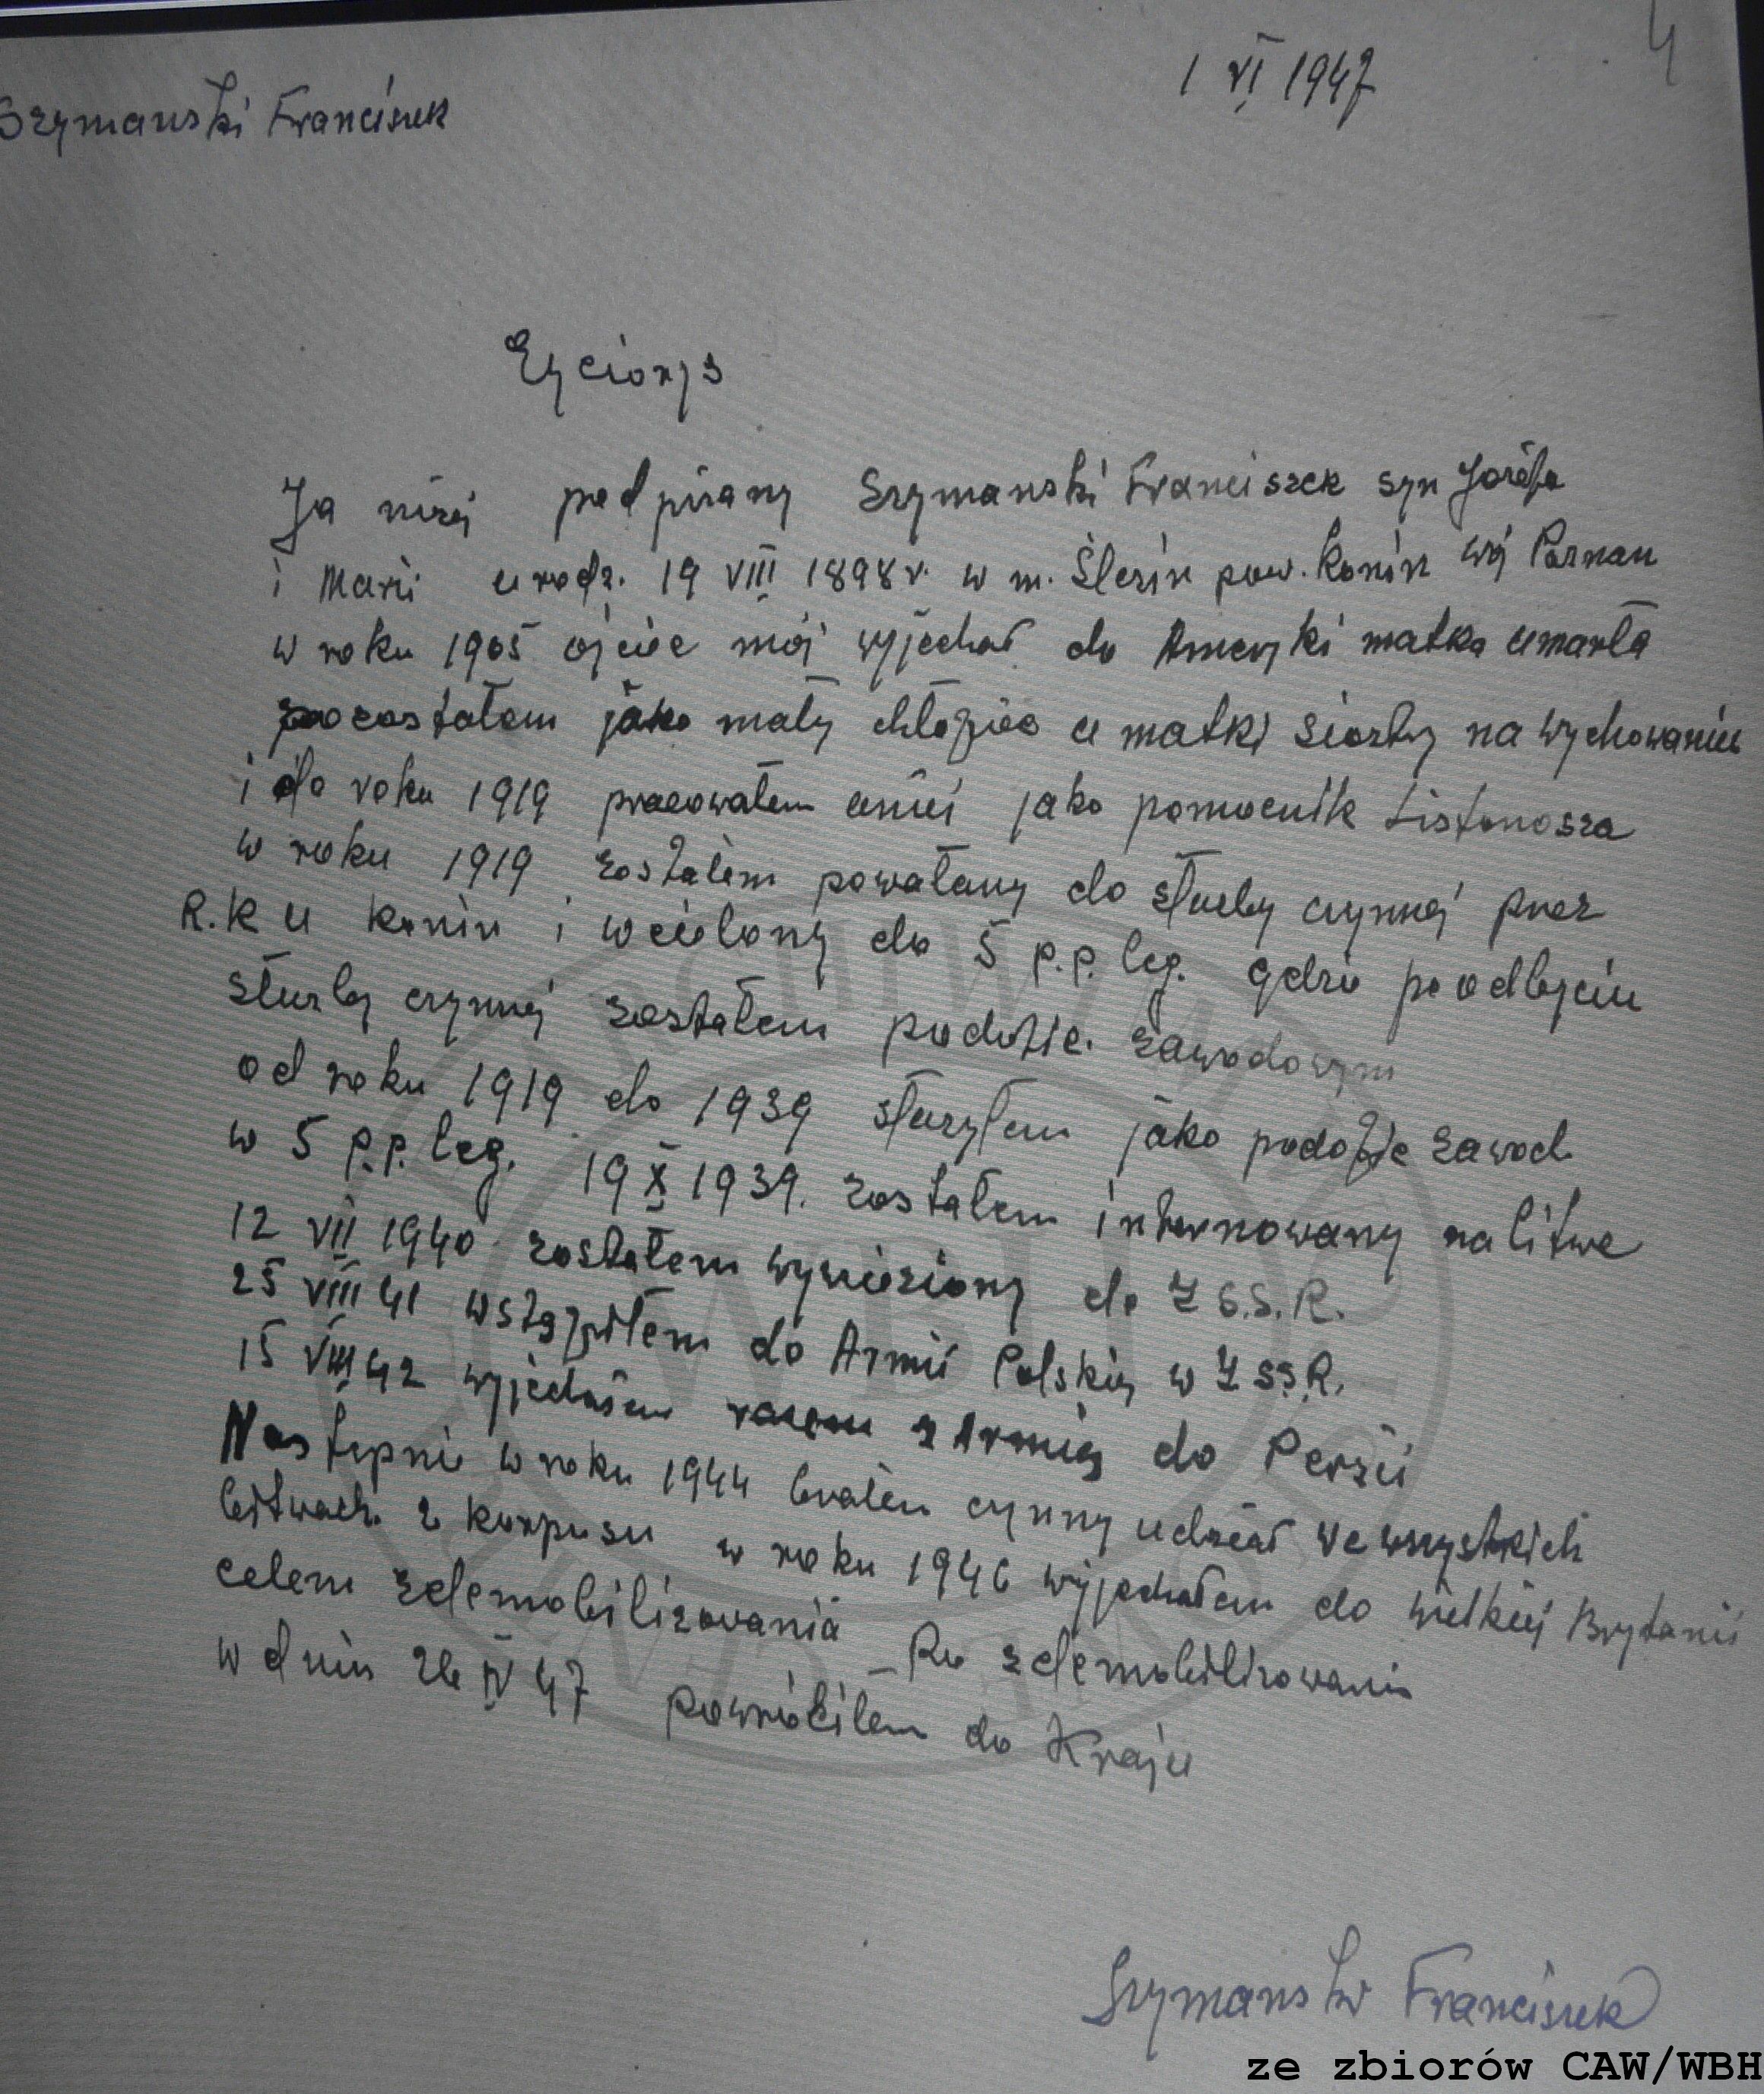 4
1 VI 1947
Szymanski Franciszek
Życiorys
Ja niżej podpisany Szymanski Franciszek syn Józefa
i Marii urodz. 19 VIII 1898 r. w m. Ślesin pow. Konin woj Poznan
w roku 1905 ojciec mój wyjechał do Ameryki matka umarła
pozostałem jako mały chłopiec u matki siostry na wychowaniu
i do roku 1919 pracowałem u niej jako pomocnik Listonosza
w roku 1919 zostałem powołany do służby czynnej przez
R.K U Konin i wcielony do 5 p.p. leg. gdzie po odbyciu
służby czynnej zostałem podofic. zawodowym
od roku 1919 do 1939 służyłem jako podofic zawod.
w 5 p.p. leg. 19 X 1939. zostałem internowany na litwe
12 VII 1940 zostałem wywieziony do Z S.S.R.
25 VIII 41 wstąpiłem do Armii Polskiej w Z SS.R.
15 VIII 42 wyjechałem razem z Armią do Persii
Następnie w roku 1944 brałem czynny udział we wszystkich
bitwach 2 korpusu w roku 1946 wyjechałem do wielkiej Brytanii
celem zdemobilizowania Po zdemobilizowaniu
w dniu 26 IV 47 powróciłem do Kraju
Szymanski Franciszek
ze zbiorów CAW/WBH
WBH